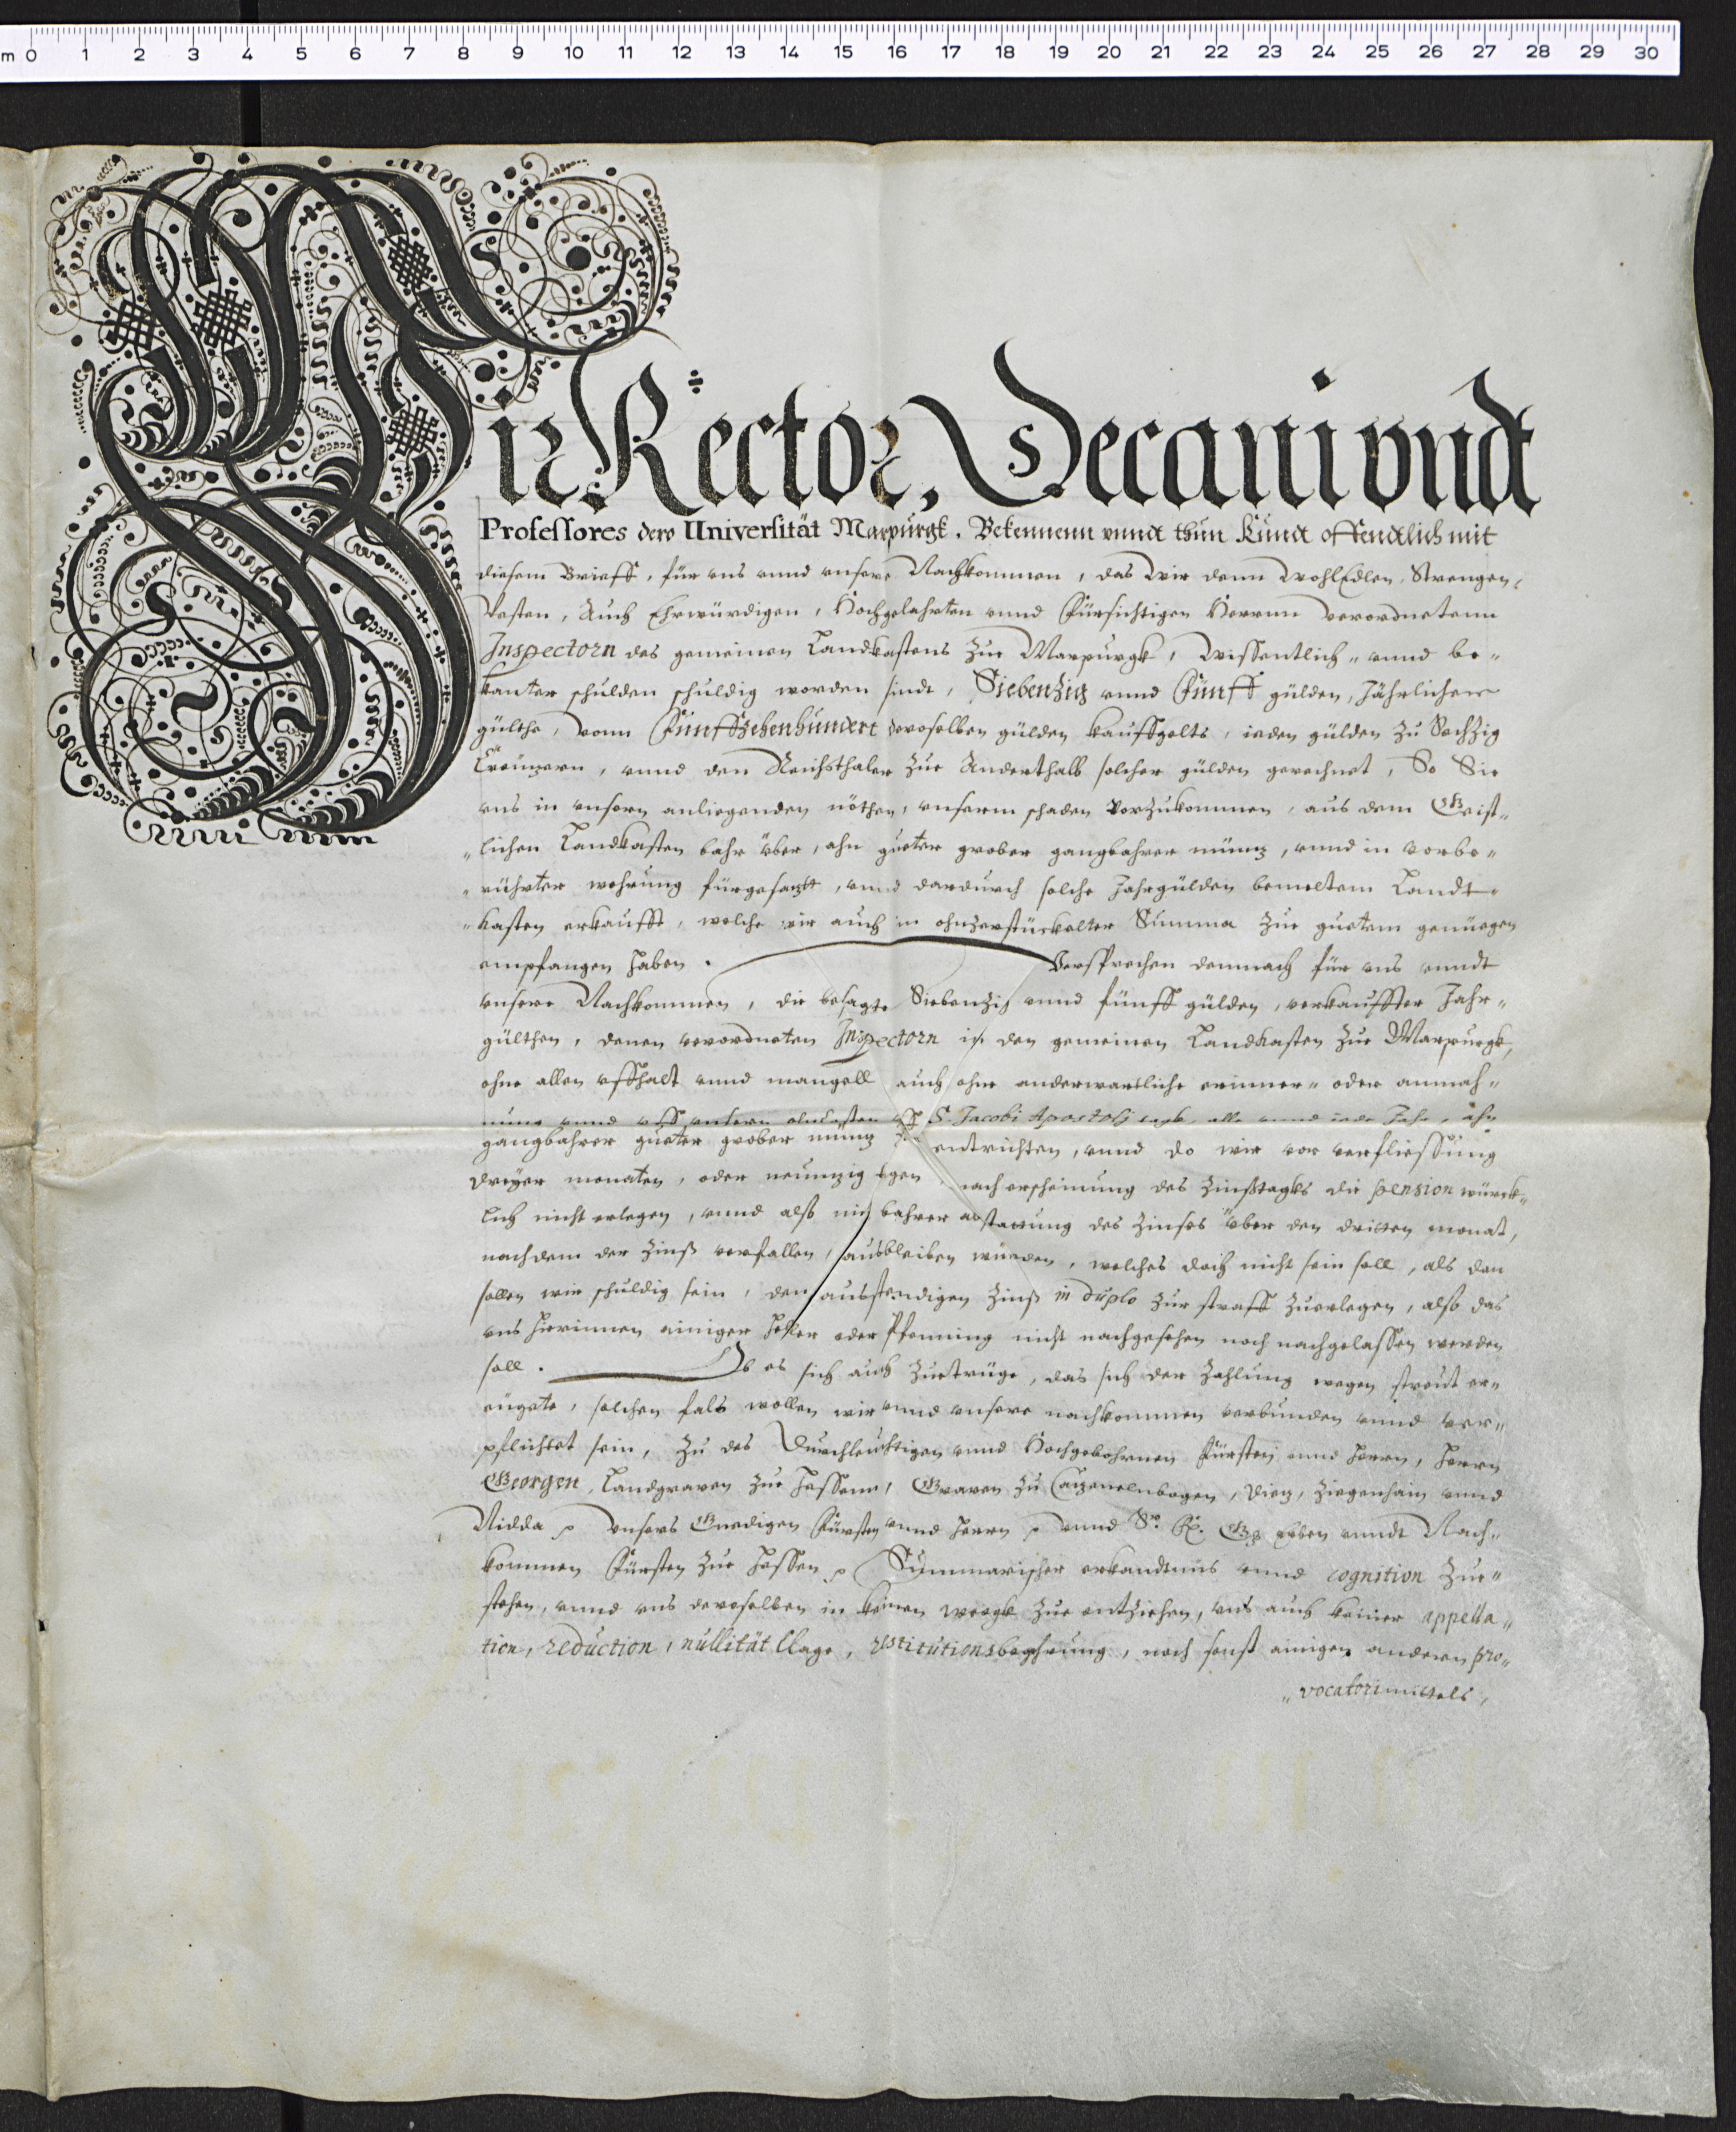 m 0 1 2 3 4 5 6 7 8 9 10 11 12 13 14 15 16 17 18 19 20 21 22 23 24 25 26 27 28 29 30
Wir Rector, Decani vndt
Professores dero Universität Marpurgk. Bekennenn vnndt thun Kundt offentlich mit
diesem Brieff, für vns vnnd vnsere Nachkommen, das Wir denn WohlEdlen, Strengen,
Vesten, Auch Ehrwürdigen, Hochgelahrten vnnd Fürsichtigen Herrnn Verordnetenn
Inspectorn des gemeinen Landkastens zue Marpurgk, Wissentlich= vnnd be=
kanter schulden schuldig worden sindt, Siebenzig vnnd Fünff gülden, Jährlicher
gülthe, vonn Fünffzehenhundert deroselben gülden kauffgelts, ieden gülden zu Sechzig
Creutzern, vnnd den Reichsthaler zue Anderthalb solcher gülden gerechnet, So Sie
vns in vnsern anliegenden nöthen, vnserm schaden vorzukommen, aus dem Geist=
=lichen Landkasten bahr über, ahn gueter grober gangbahrer müntz, vnnd in vorbe=
=rührter wehrung fürgesatzt, vnnd dardurch solche Jahrgülden bemeltem Landt=
=kasten erkaufft, welche wir auch in ohnzerstückelter Summa zue guetem genüegen
empfangen haben. Versprechen demnach für vns vnndt
vnsere Nachkommen, die besagte Siebenzig vnnd fünff gülden, verkauffter Jahr=
gülthen, denen verordneten Inspectorn in den gemeinen Landkasten zue Marpurgk,
ohne allen vffhalt vnnd mangell auch ohne anderwertliche erinner= oder anmah=
nung vnnd vff vnsern vncosten vff S. Jacobi Apostoli tagk, alle vnnd iede Jahr, ahn
gangbahrer gueter grober müntz zu entrichten, vnnd do wir vor verfliessung
dreyer monaten, oder neuntzig tagen, nach erscheinung des Zinßtagks die pension würck=
lich nicht erlegen, vnnd also mit bahrer abstattung des Zinses über den dritten monat,
nachdem der Zinß verfallen, ausbleiben würden, welches doch nicht sein soll, als dan
sollen wir schuldig sein, den ausstendigen Zinß in duplo zur straff zuerlegen, also das
vns hierinnen einiger heller oder Pfenning nicht nachgesehen noch nachgelassen werden
soll. Ob es sich auch zuetrüge, das sich der Zahlung wegen streit er=
eugete, solchen fals wollen wir vnnd vnsere nachkommen verbunden vnnd ver=
pflichtet sein, zu des Durchleuchtigen vnnd Hochgebohrnen Fürsten vnnd Herrn, Herrn
Georgen, Landgraven zue Hessenn, Graven zu Catzenelnbogen, Dietz, Ziegenhain vnnd
Nidda p Vnsers Gnedigen Fürsten vnnd Herrn p vnnd Sr. F. G. Erben vnndt Nach=
kommen Fürsten zue Hessen p Summarischer erkandtnus vnnd cognition zue=
stehen, vnnd vns deroselben in keinen weegk zue entziehen, vns auch keiner appella=
tion, reduction, nullität Clage, restitutionsbegehrung, noch sonst einigen andern pro=
=vocatorimittels,